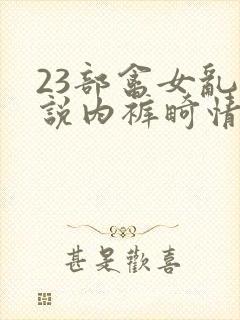 23部畜女乱
説内裤畸情
甚是歡喜